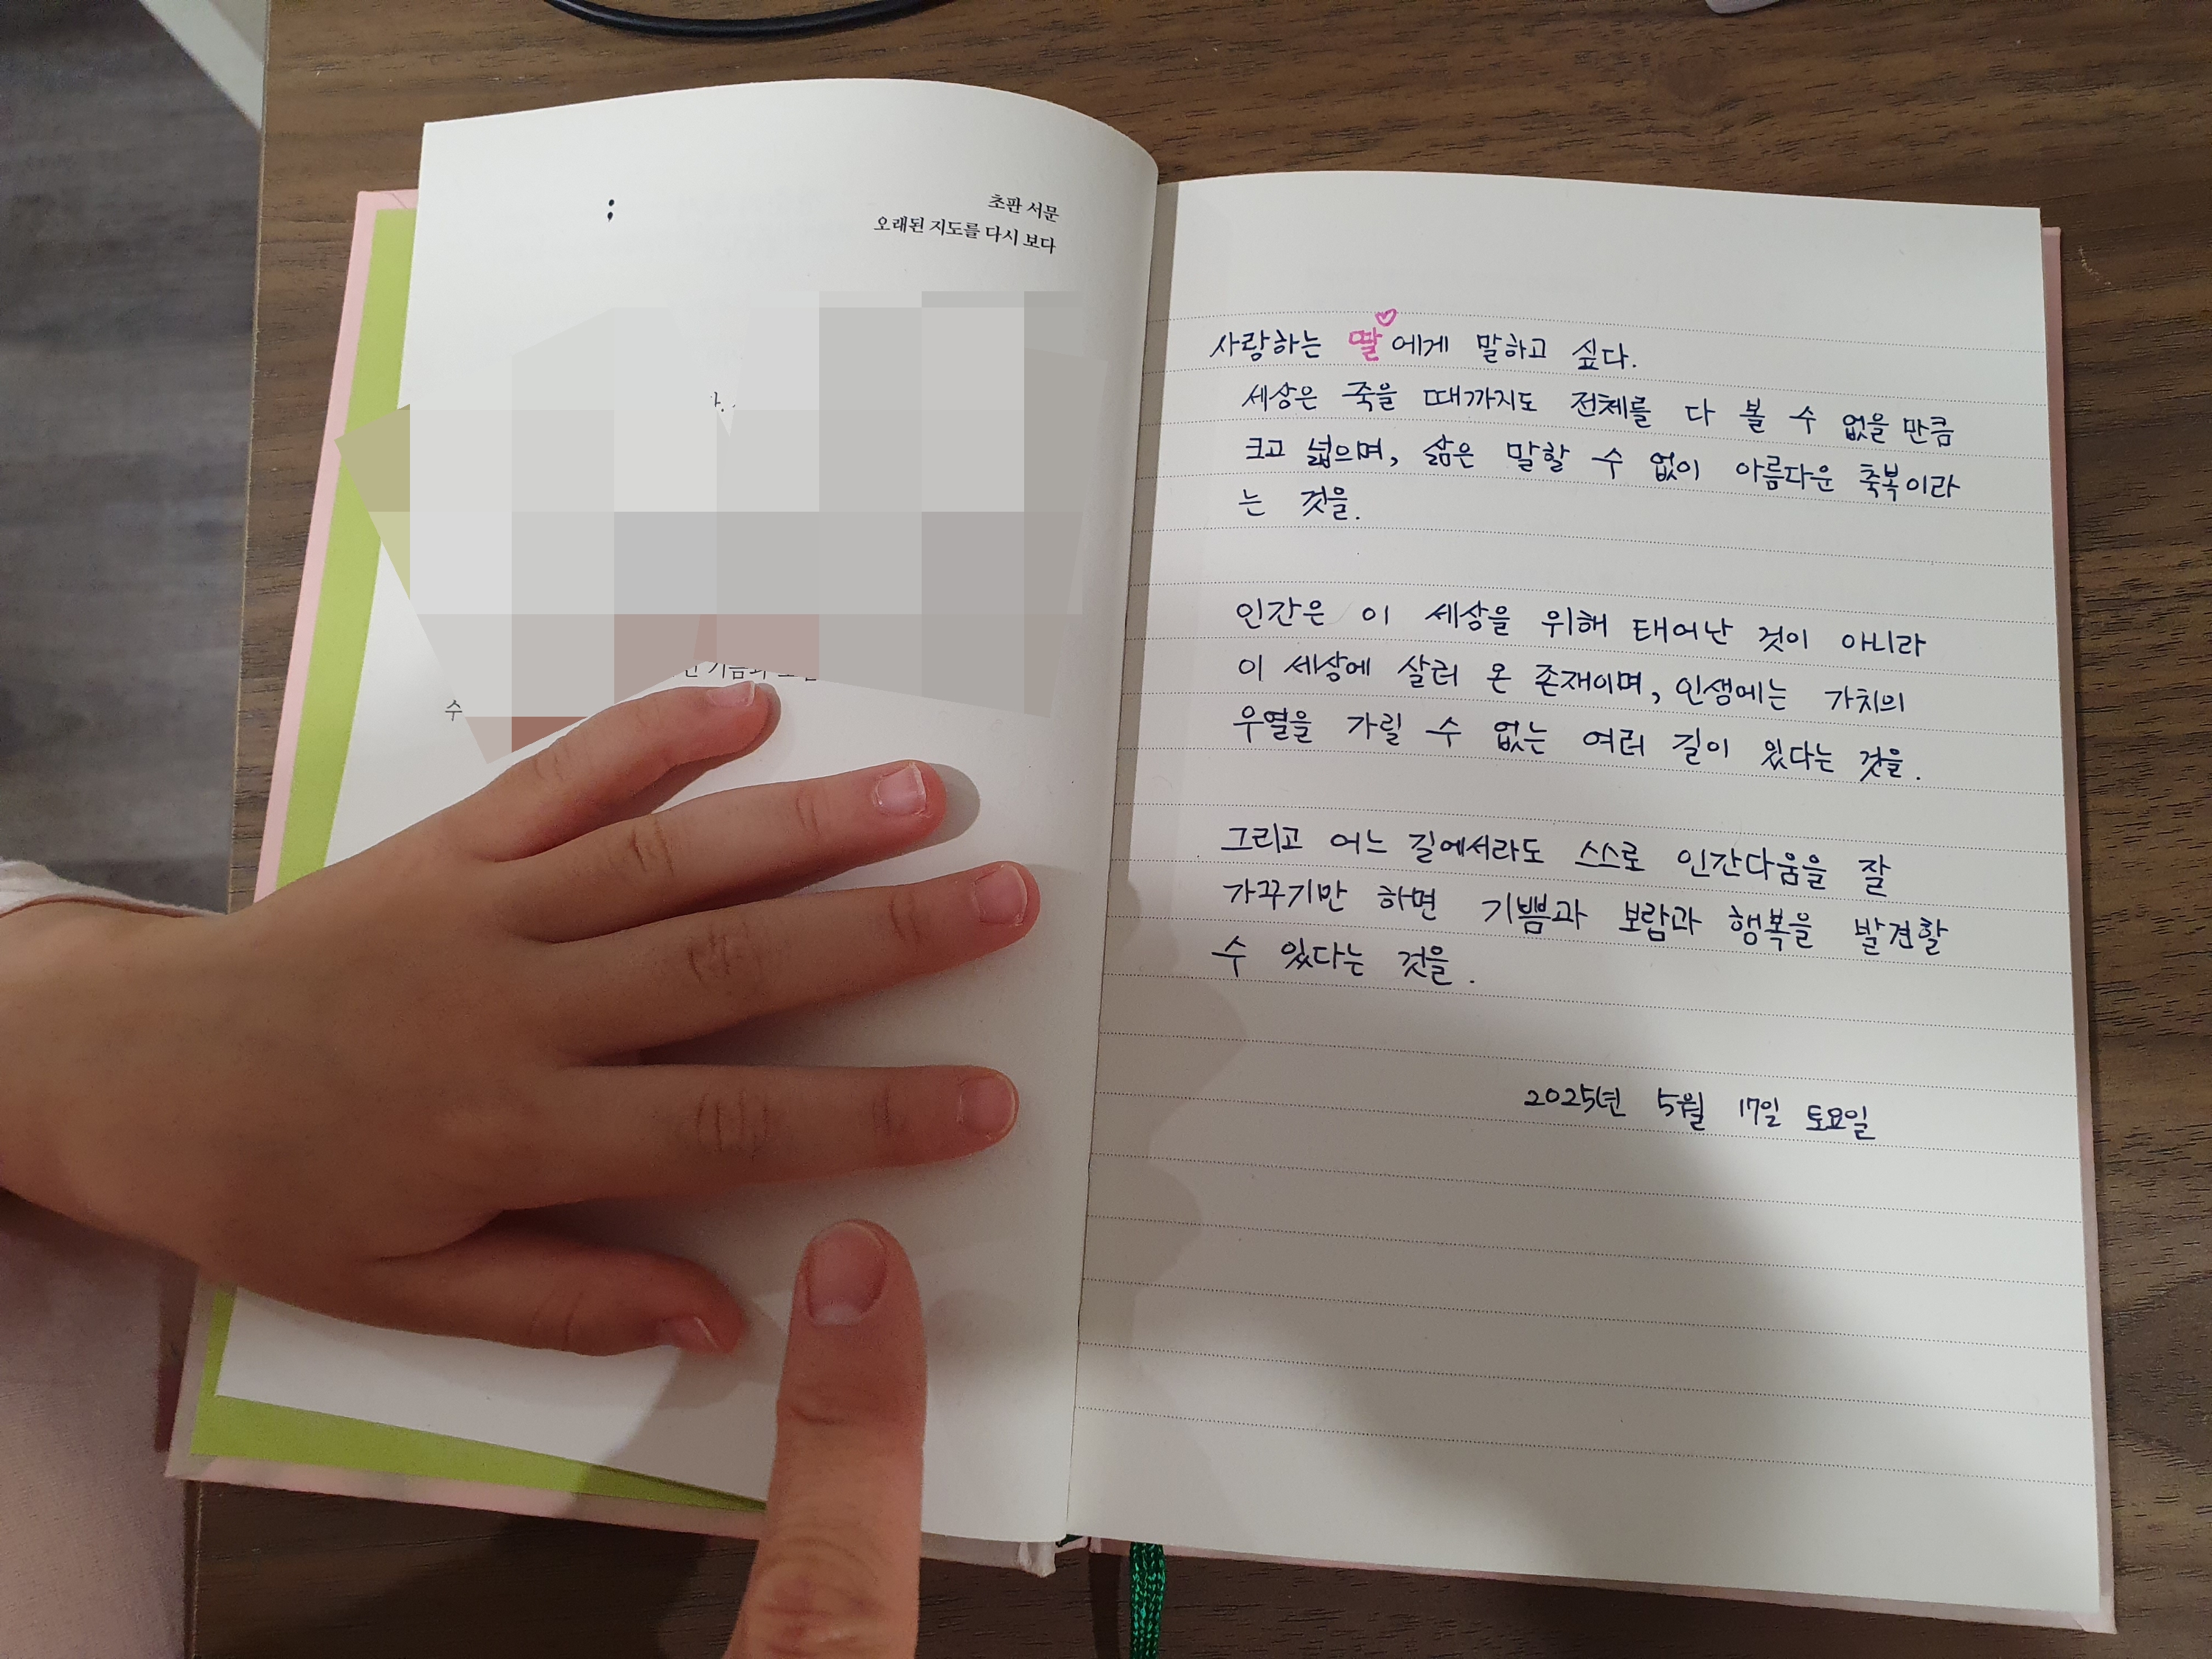 초판 서문
오래된 지도를 다시 보다
수
사랑하는 딸에게 말하고 싶다.
세상은 죽을 때까지도 전체를 다 볼 수 없을 만큼
크고 넓으며, 삶은 말할 수 없이 아름다운 축복이라
는 것을.
인간은 이 세상을 위해 태어난 것이 아니라
이 세상에 살러 온 존재이며, 인생에는 가치의
우열을 가릴 수 없는 여러 길이 있다는 것을.
그리고 어느 길에서라도 스스로 인간다움을 잘
가꾸기만 하면 기쁨과 보람과 행복을 발견할
수 있다는 것을.
2025년 5월 17일 토요일